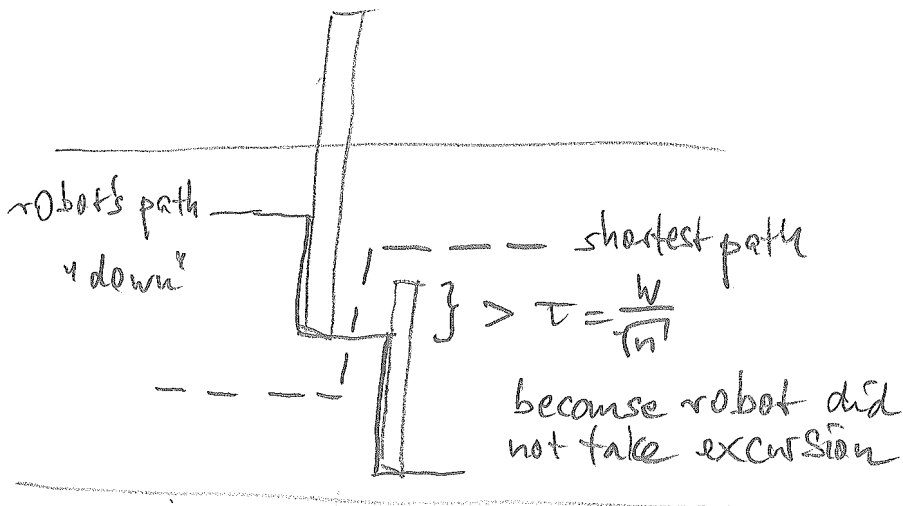 robot's path
"down"
shortest path
} > τ = W/√n
because robot did
not take excursion